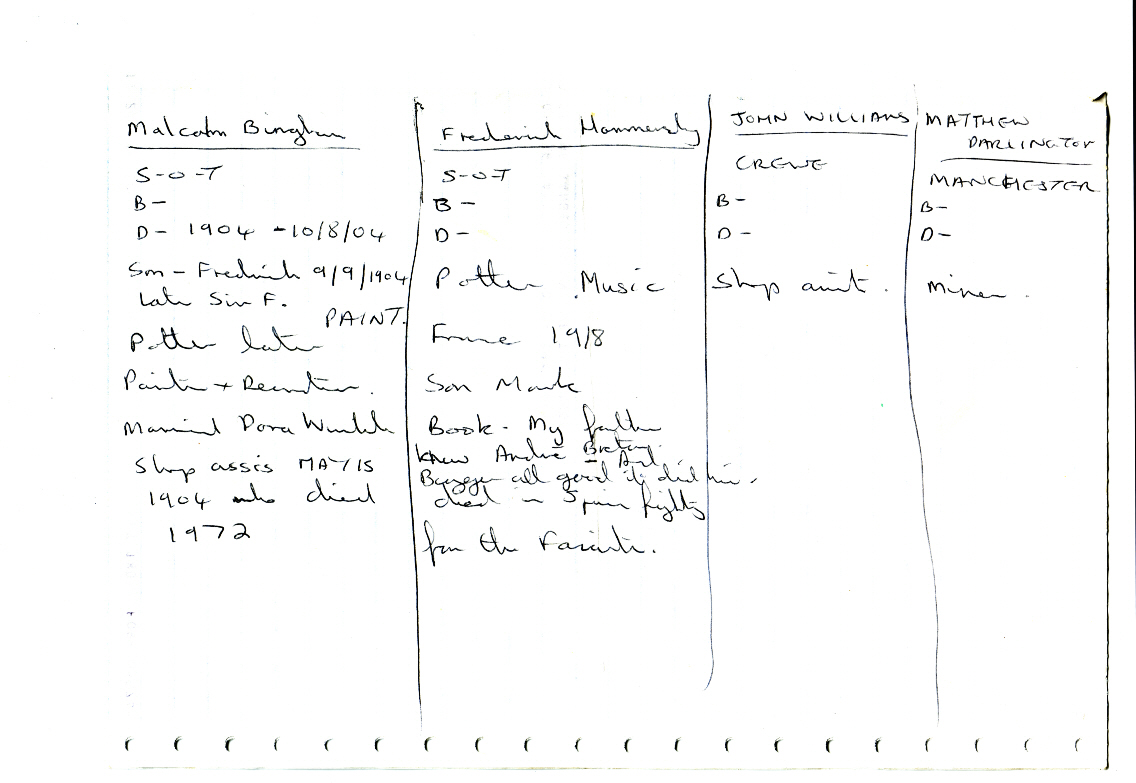 Malcolm Bingham
S-O-T
B-
D- 1904 - 10/8/04
Son - Fredrick 9/9/1904
Late Sir F.
PAINT.
Potter later
Painter + Decorator.
Married Dora
Shop assis MAY 15
1904 who died
1972
Frederick Hammersly
S-O-T
B-
D-
Potter . Music
France 1918
Son Mark
Book - My father
knew André Breton.
Art
Bugger all good it did him.
died in Spain fighting
for the Fascists.
JOHN WILLIAMS
CREWE
B-
D-
Shop assit.
MATTHEW
DARLINGTON
MANCHESTER
B-
D-
Miner.